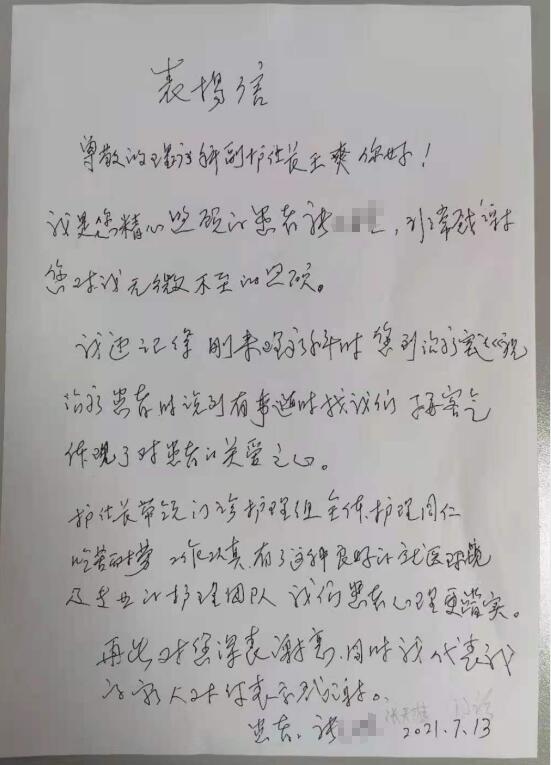 表扬信
尊敬的理疗科副护士长王爽你好!
我是您精心照顾的患者张 ,非常感谢
您对我无微不至的照顾。
我还记得刚来理疗科时您到治疗室巡视
治疗患者时说到有事随时找我们 不客气
体现了对患者的关爱之心。
护士长带领门诊护理组全体护理同仁
吃苦耐劳 工作认真 有了这种良好的就医环境
及专业的护理团队 我们患者心理更踏实。
再次对您深表谢意,同时我代表我
的家人对你表示感谢。
患者:张 2021.7.13